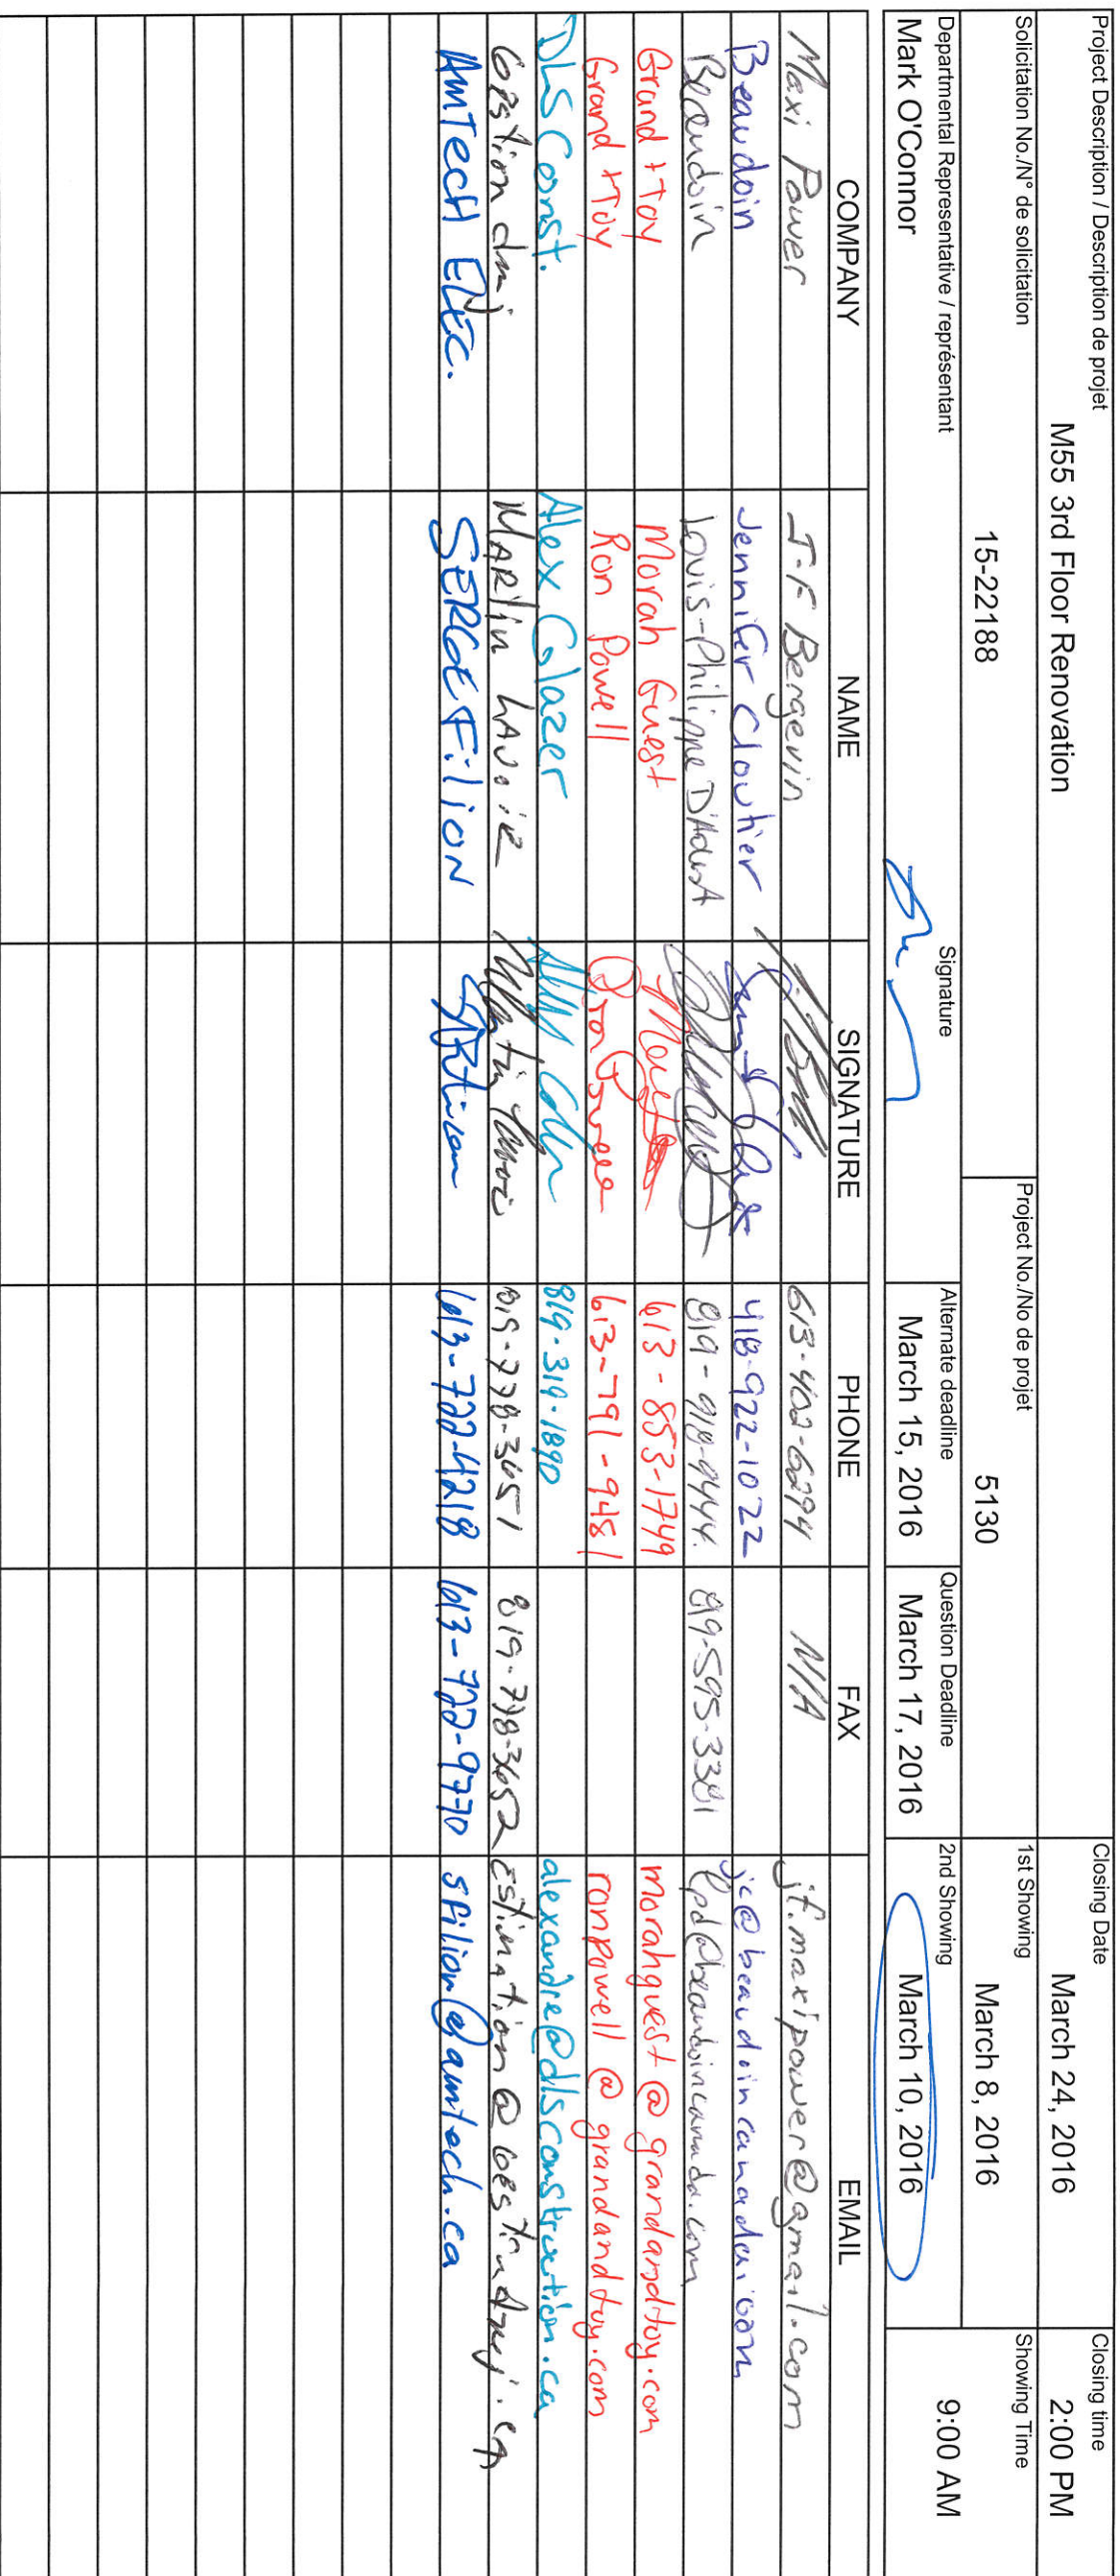 Project Description / Description de projet
M55 3rd Floor Renovation
Closing Date
March 24, 2016
Closing time
2:00 PM
Solicitation No./N° de solicitation
15-22188
Project No./No de projet
5130
1st Showing
March 8, 2016
Showing Time
9:00 AM
Departmental Representative / représentant
Mark O'Connor
Signature
Alternate deadline
March 15, 2016
Question Deadline
March 17, 2016
2nd Showing
March 10, 2016
COMPANY NAME SIGNATURE PHONE FAX EMAIL
Maxi Power J-F Bergevin 613-402-6294 N/A jf.maxipower@gmail.com
Beaudoin Jennifer Cloutier 418-922-1022 jc@beaudoincanada.com
Beaudoin Louis-Philippe D'Aoust 819-918-9444 819-595-3381 lpd@beaudoincanada.com
Grand + Toy Morah Guest 613-853-1749 morahguest@grandandtoy.com
Grand + Toy Ron Powell 613-791-9481 ronpowell@grandandtoy.com
DLS Const. Alex Glazer 819-319-1890 alexandre@dlsconstruction.ca
Gestion dmj Martin Lavoie 819-778-3651 819-778-3652 estimation@gestiondmj.ca
AMTECH ELEC. SERGE Filion 613-722-4218 613-722-9770 sfilion@amtech.ca